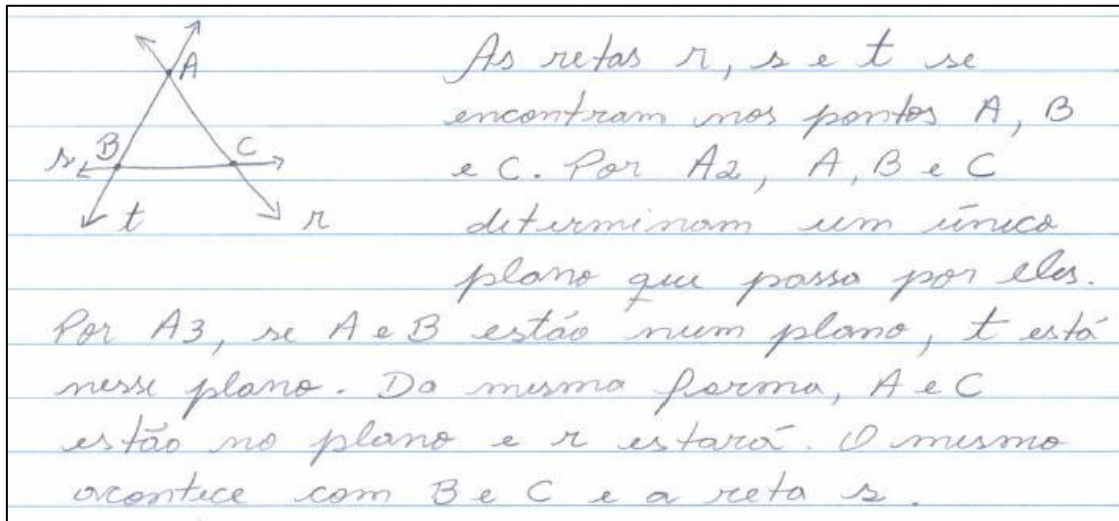 A
B
C
s
t
r
As retas r, s e t se
encontram nos pontos A, B
e C. Por A2, A, B e C
determinam um único
plano que passa por eles.
Por A3, se A e B estão num plano, t está
nesse plano. Da mesma forma, A e C
estão no plano e r estará. O mesmo
acontece com B e C e a reta s.